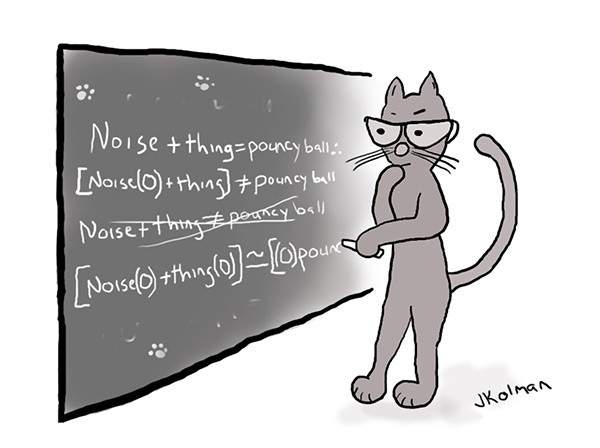 Noise + thing = pouncy ball ∴
[Noise(0) + thing] ≠ pouncy ball
Noise + thing ≠ pouncy ball
[Noise(0) + thing(0)] ≃ [(0)pounc
JKolman